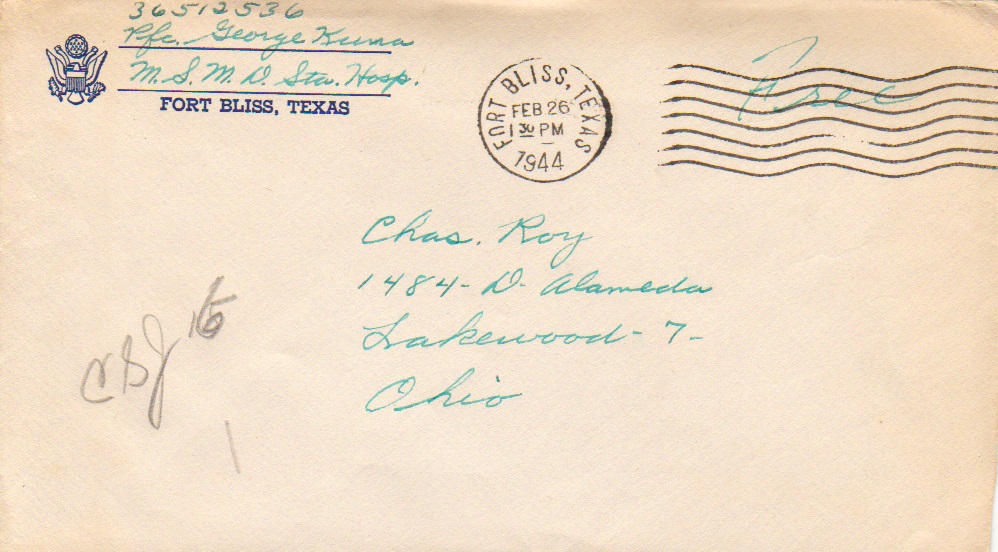 36512536
Pfc. George Kuma
M. S. M. D Sta. Hosp.
FORT BLISS, TEXAS
FORT BLISS, TEXAS
FEB 26
1 30 PM
1944
Free
Chas. Roy
1484 - D - Alameda
Lakewood - 7 -
Ohio